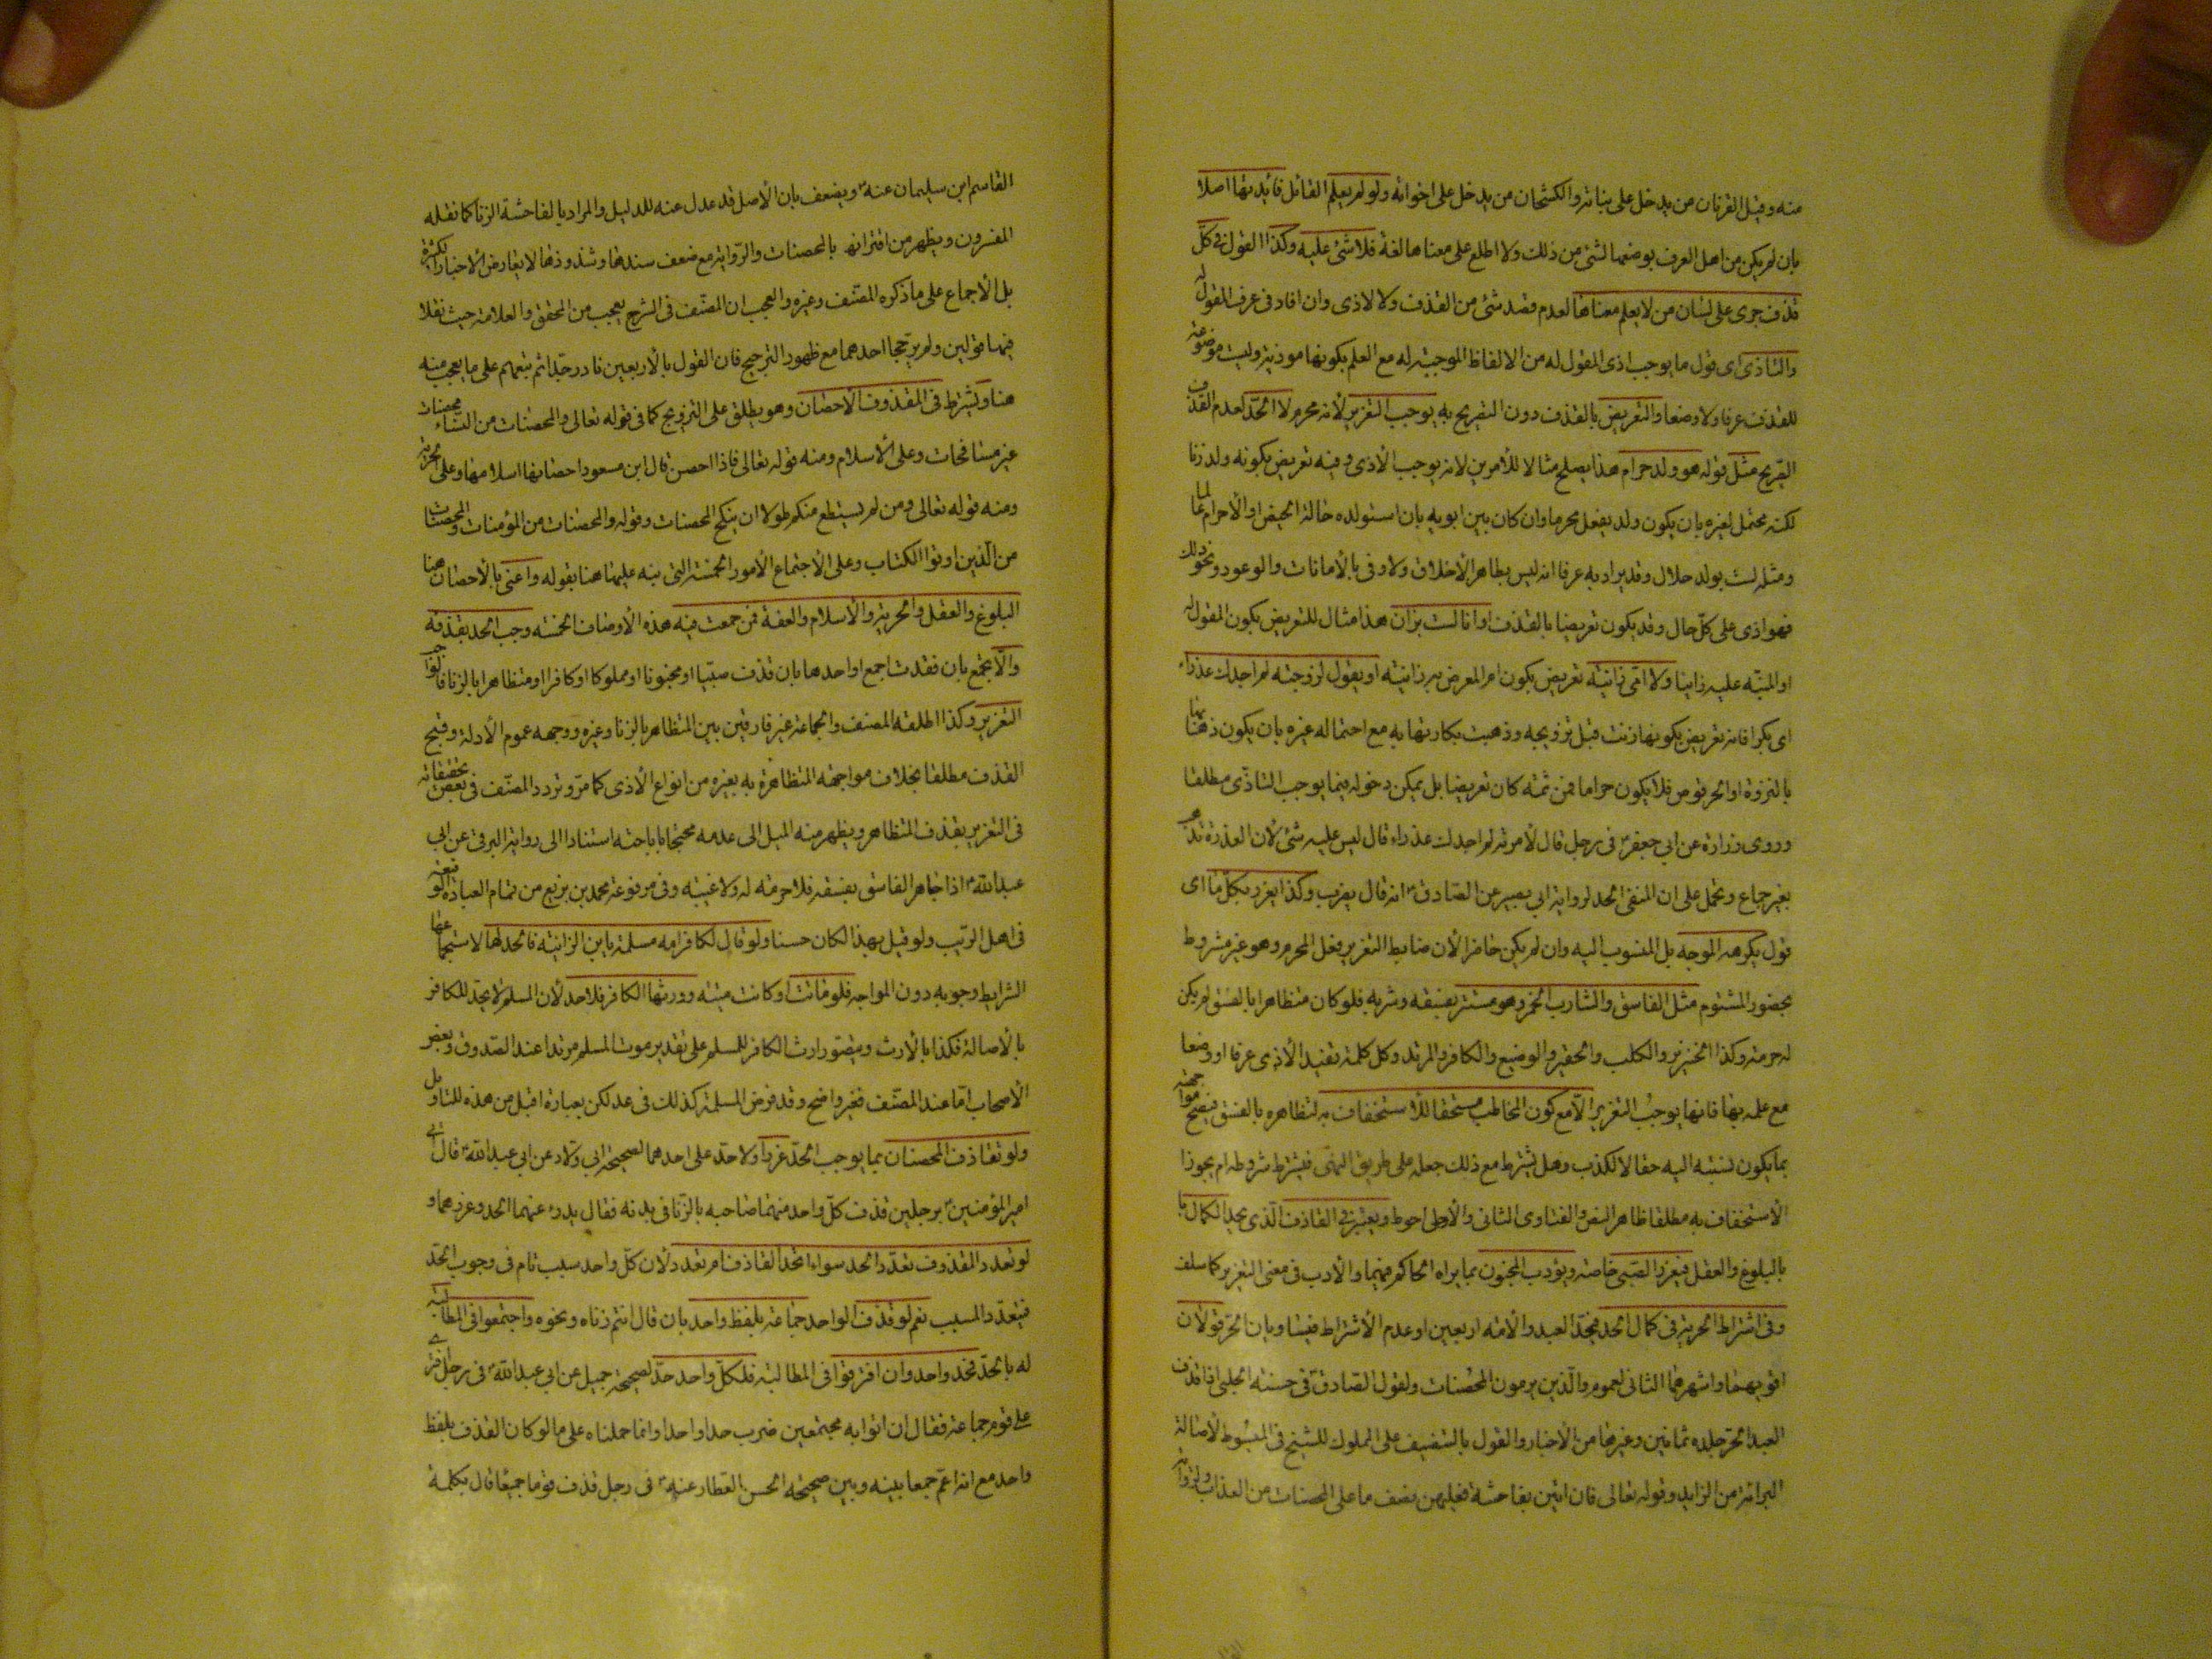 منه وقيل القرنان من يدخل على بناته والكشخان من يدخل على اخواته ولو لم يعلم القائل فائدتها اصلا
بان لم يكن من اهل العرف بوضعها لشئ من ذلك ولا اطلع على معناها لغة فلا شئ عليه وكذا القول فى كل
قذف جرى على لسان من لا يعلم معناها لعدم قصد شئ من القذف ولا الاذى وان افاد فى عرف المقول له
والتاذى اى قول ما يوجب اذى المقول له من الالفاظ الموجبة له مع العلم بكونها موذية وليست موضوعة
للقذف عرفا ولا وضعا والتعريض بالقذف دون التصريح به يوجب التعزير لأنه محرم لا الحد لعدم القذف
الصريح مثل قوله هو ولد حرام هذا يصلح مثالا للأمرين لانه يوجب الأذى وفيه تعريض بكونه ولد زنا
لكنه محتمل لغيره بان يكون ولد بفعل محرم وان كان بين ابويه بان استولده حالة الحيض او الأحرام عالما
ومثله لست بولد حلال وقد يراد به عرفا انه ليس بطاهر الأخلاق ولا وفى بالأمانات والوعود ونحو ذلك
فهو اذى على كل حال وقد يكون تعريضا بالقذف او انا لست بزان هذا مثال للتعريض بكون المقول له
او المنبه عليه زانيا ولا امى زانية تعريض بكون ام المعرض به زانيته او يقول لزوجته لم اجدك عذراء
اى بكرا فانه تعريض بكونها زنت قبل تزويجه وذهبت بكارتها به مع احتماله غيره بان يكون ذهابها
بالنزوة او الحرقوص فلا يكون حراما فمن ثمة كان تعريضا بل يمكن دخوله فيما يوجب التاذى مطلقا
وروى زرارة عن ابى جعفر فى رجل قال لأمرته لم اجدك عذراء قال ليس عليه شئ لأن العذرة تذهب
بغير جماع وتحمل على ان المنفى الحد لرواية ابى بصير عن الصادق انه قال يضرب وكذا يعزر بكل ما اى
قول يكرهه الموجه بل المنسوب اليه وان لم يكن حاضرا لأن ضابط التعزير فعل المحرم وهو غير مشروط
بحضور المشتوم مثل الفاسق والشارب الخمر وهو مستتر بفسقه وشربه فلو كان متظاهرا بالفسق لم يكن
له حرمة وكذا الخنزير والكلب والحقير والوضيع والكافر والمرتد وكل كلمة تفيد الأذى عرفا او وضعا
مع علمه بها فانها يوجب التعزير الا مع كون المخاطب مستحقا للأستخفاف به لتظاهره بالفسق فيصح مواجهته
بما يكون نسبته اليه حقا لا لكذب وهل يشترط مع ذلك جعله على طريق النهى فيشترط شروطه ام يجوز
الأستخفاف به مطلقا ظاهر النص والفتاوى الثانى والأول احوط ويعتبر فى القاذف الذى يحد الكمال با
بالبلوغ والعقل فيعزر الصبى خاصة ويؤدب المجنون بما يراه الحاكم فيهما والأدب فى معنى التعزير كما سلف
وفى اشتراط الحرية فى كمال الحد فيحد العبد والأمة اربعين او عدم الأشتراط فيساويان الحر قولان
اقويهما واشهرهما الثانى لعموم والذين يرمون المحصنات ولقول الصادق فى حسنة الحلبى اذا قذف
العبد الحر جلد ثمانين وغيرها من الأخبار والقول بالتنصيف على المملوك للشيخ فى المبسوط لأصالة
البرائة من الزايد وقوله تعالى فان اتين بفاحشة فعليهن نصف ما على المحصنات من العذاب ولرواية
القاسم ابن سليمان عنه ويضعف بان الأصل قد عدل عنه للدليل والمراد بالفاحشة الزنا كما نقله
المفسرون ويظهر من اقترانها بالمحصنات والرواية مع ضعف سندها وشذوذها لا يعارض الأخبار الكثيرة
بل الأجماع على ما ذكره المصنف وغيره والعجب ان المصنف فى الشرح يعجب من المحقق والعلامة حيث نقلا
فيها قولين ولم يرجحا احدهما مع ظهور الترجيح فان القول بالأربعين نادر جدا ثم تبعهم على ما يعجب منه
هنا ويشترط فى المقذوف الأحصان وهو يطلق على التزويج كما فى قوله تعالى والمحصنات من النساء محصنات
غير مسافحات وعلى الأسلام ومنه قوله تعالى فاذا احصن قال ابن مسعود احصانها اسلامها وعلى الحرية
ومنه قوله تعالى ومن لم يستطع منكم طولا ان ينكح المحصنات وقوله والمحصنات من المؤمنات والمحصنات
من الذين اوتوا الكتاب وعلى الأجتماع الأمور الخمسة التى نبه عليها هنا بقوله واعنى بالأحصان هنا
البلوغ والعقل والحرية والأسلام والعفة فمن جمعت فيه هذه الأوصاف الخمسة وجب الحد بقذفه
والا يجتمع بان فقدت اجمع او احدها بان قذف صبيا او مجنونا او مملوكا او كافرا او متظاهرا بالزنا فالواجب
التعزير وكذا اطلقه المصنف والجماعة غير فارقين بين المتظاهر بالزنا وغيره ووجهه عموم الأدلة وقبح
القذف مطلقا بخلاف مواجهة المتظاهرة به بغيره من انواع الأذى كما مر وتردد المصنف فى بعض تحقيقاته
فى التعزير بقذف المتظاهر ويظهر منه الميل الى عدمه محتجا باباحته استنادا الى رواية البرقى عن ابى
عبد الله اذا جاهر الفاسق بفسقه فلا حرمة له ولا غيبة وفى مرفوعة محمد بن بزيع من تمام العبادة الوقيعة
فى اهل الريب ولو قيل بهذا لكان حسنا ولو قال لكافر امه مسلمة يابن الزانية فالحد لها لاستجماعها
الشرايط وجوبه دون المواجه فلو ماتت او كانت ميتة وورثها الكافر فلا حد لأن المسلم لا يحد للكافر
بالأصالة فكذا بالأرث ويتصور ارث الكافر للمسلم على تقدير موت المسلم مرتدا عند الصدوق وبعض
الأصحاب اما عند المصنف فغير واضح وقد فرض المسلمة كذلك فى عد لكن بعبارة اقبل من هذه للتاويل
ولو تقاذف المحصنان بما يوجب الحد عزرا ولا حد على احدهما لصحيحة ابى ولاد عن ابى عبد الله قال اتى
امير المؤمنين برجلين قذف كل واحد منهما صاحبه بالزنا فى بدنه فقال يدرء عنهما الحد وعزرهما و
لو تعدد المقذوف تعدد الحد سواء اتحد القاذف ام تعدد لأن كل واحد سبب تام فى وجوب الحد
فيتعدد المسبب نعم لو قذف الواحد جماعة بلفظ واحد بان قال انتم زناه ونحوه واجتمعوا فى المطالبة
له بالحد فحد واحد وان افترقوا فى المطالبة فلكل واحد حد لصحيحة جميل عن ابى عبد الله فى رجل افترى
على قوم جماعة فقال ان اتوا به مجتمعين ضرب حدا واحدا وانما حملناه على ما لو كان القذف بلفظ
واحد مع انه اعم جمعا بينه وبين صحيحة الحسن العطار عنه فى رجل قذف قوما جميعا قال بكلمة